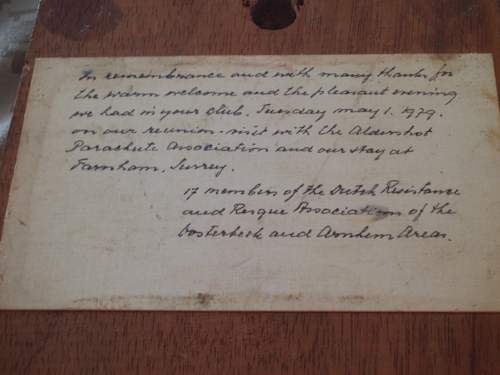 In remembrance and with many thanks for
the warm welcome and the pleasant evening
we had in your club. Tuesday may 1. 1979.
on our reunion-visit with the Aldershot
Parachute Association and our stay at
Farnham, Surrey.
17 members of the Dutch Resistance
and Resque Association of the
Oosterbeek and Arnhem Areas.